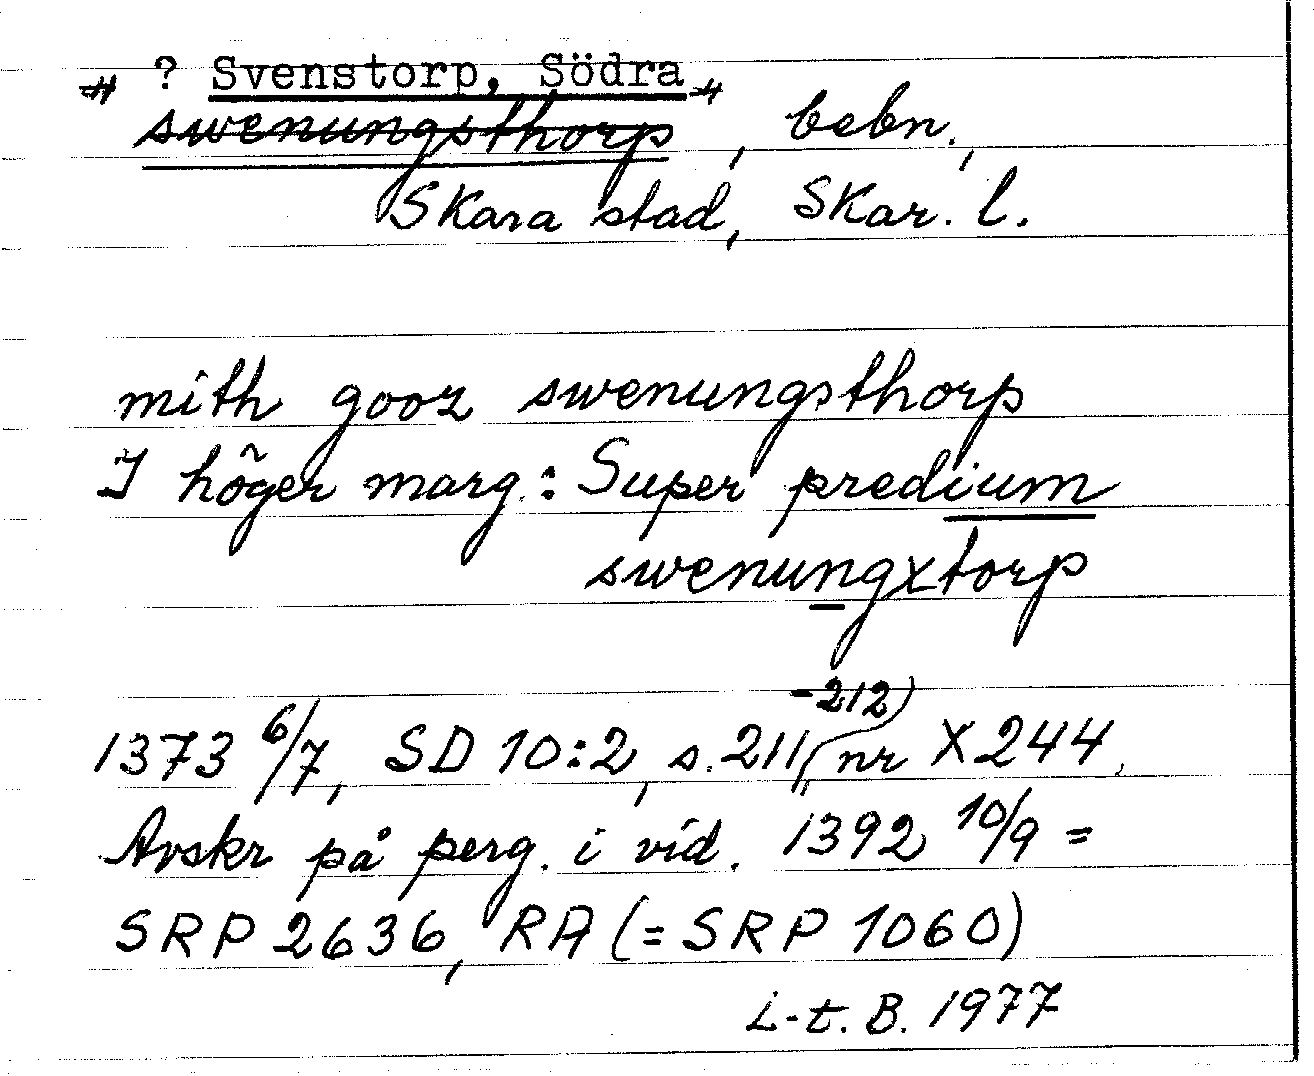 ? Svenstorp, Södra
swenungsthorp, bebn.,
Skara stad, Skar. l.
mith gooz swenungsthorp
I höger marg.: Super predium
swenungxtorp
-212
1373 6/7, SD 10:2, s. 211, nr X244.
Avskr på perg. i vid. 1392 10/9 =
SRP 2636, RA (= SRP 1060)
L-t. B. 1977